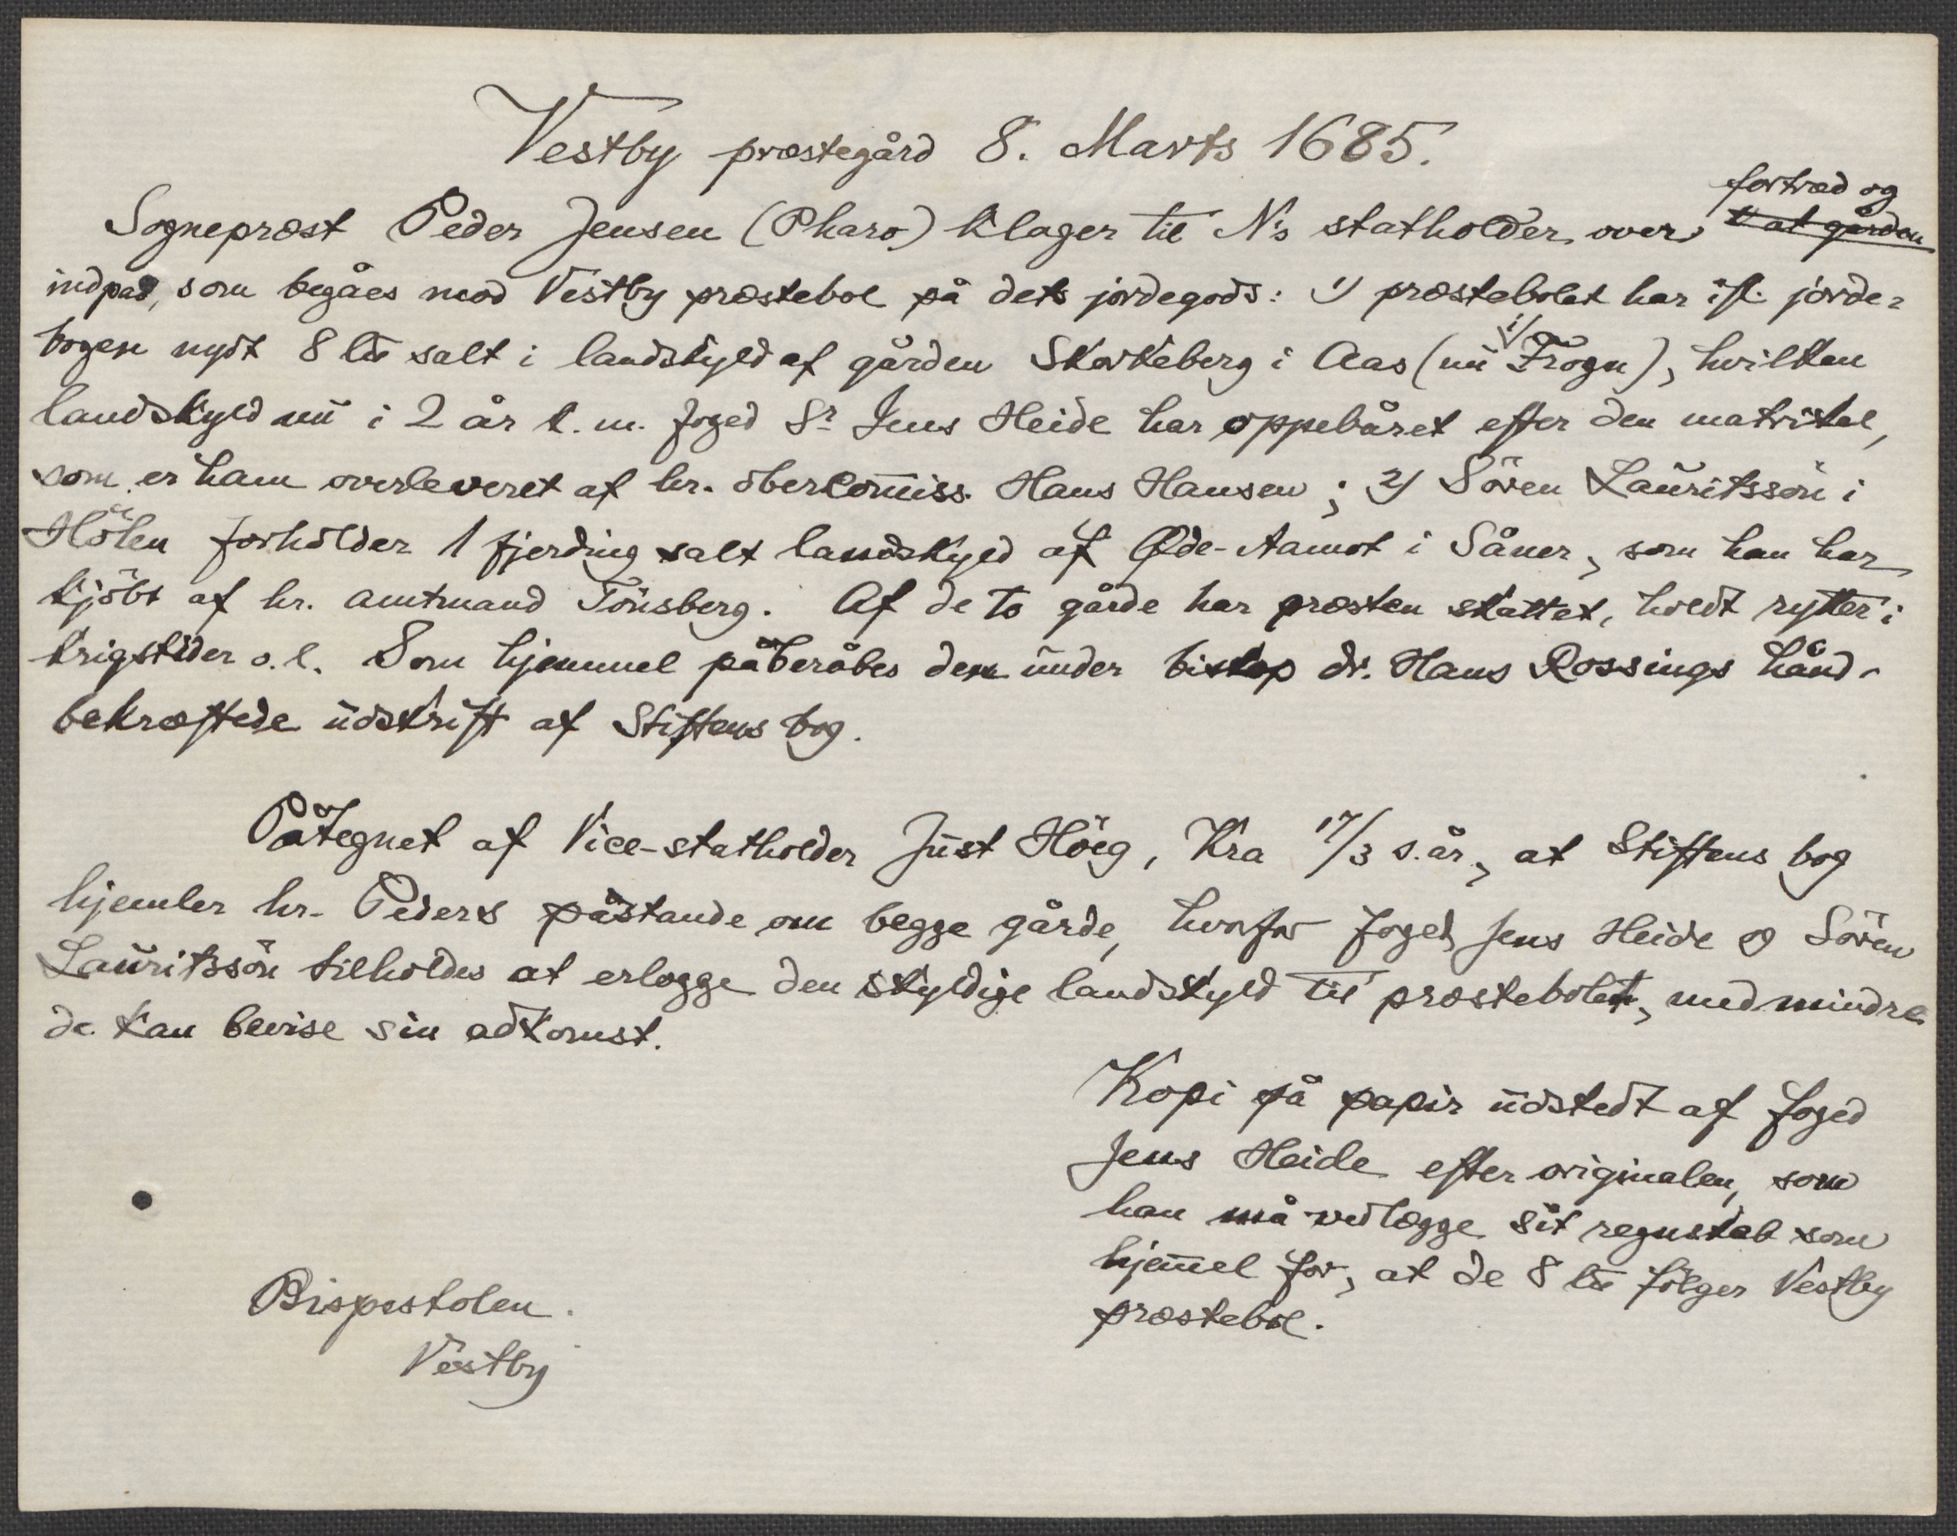 Vestby præstegård 8. Marts 1685.
fortræd og
Sognepræst Peder Jensen (Pharo) klager til N's statholder over at gården
indpas, som begåes mod Vestby præstebol på dets jordegods: 1) præstebolet har ifl. jorde-
bogen nydt 8 lŭ salt i landskyld af gården Skorkeberg i Aas (nŭ i/ Frogn), hvilken
landskyld nŭ i 2 år k. m. foged Sr Jens Heide har oppebåret efter den matrikel,
som er ham overleveret af hr. obercom̅iss. Hans Hansen; 2) Sören Laŭritssön i
Hölen forholder 1 fjerding salt landskyld af Øde-Aamot i Såner, som han har
kjöbt af hr. amtmand Tönsberg. Af de to gårde har præsten skattet, holdt rytter i
krigstider o. l. Som hjemmel påberåbes den ŭnder biskop dr. Hans Rossings hånd-
bekræftede ŭdskrift af Stiftens bog.
Påtegnet af Vice-statholder Jŭst Höeg, Kra 17/3 s. år, at Stiftens bog
hjemler hr. Peders påstande om begge gårde, hvorfor foged Jens Heide og Sören
Laŭritssön tilholdes at erlægge den skyldige landskyld til præstebolet, med mindre
de kan bevise sin adkomst.
Kopi på papir ŭdstedt af foged
Jens Heide efter originalen, som
han må vedlægge sit regnskab som
hjem̅el for, at de 8 lŭ fölger Vestby
præstebol.
Bispestolen.
Vestby